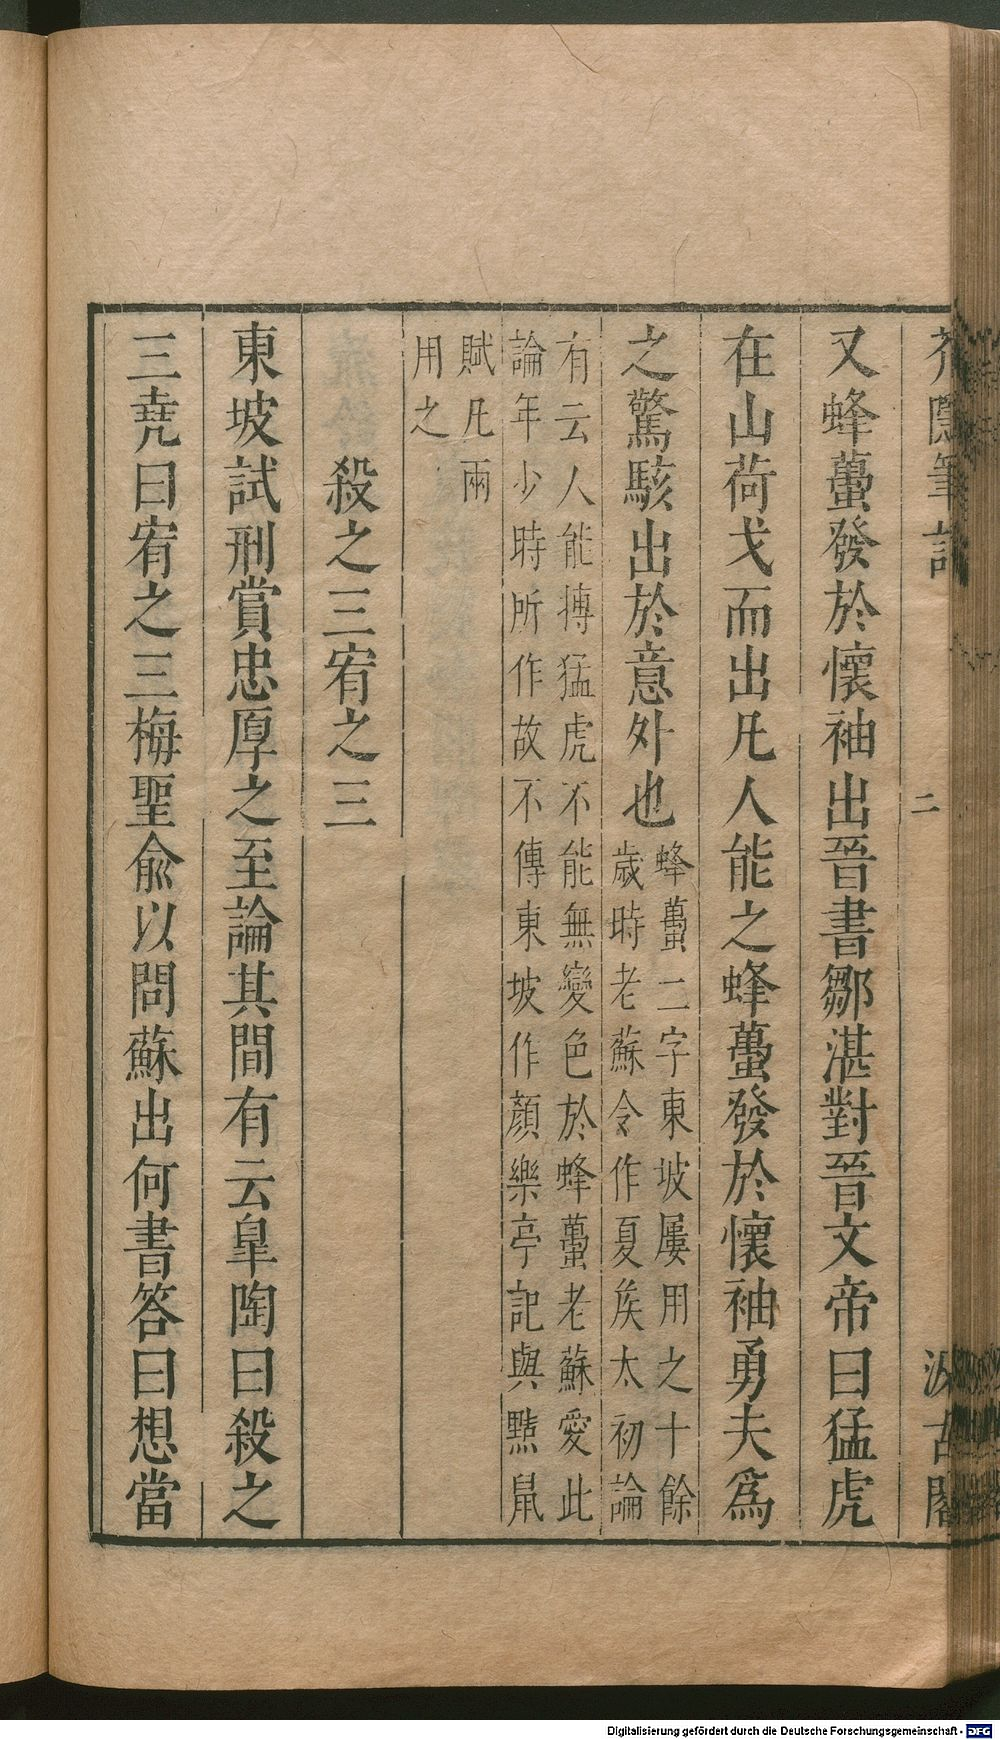 芥隱筆記
二
汲古閣
又蜂蠆發於懷袖出晉書鄒湛對晉文帝曰猛虎
在山荷戈而出凡人能之蜂蠆發於懷袖勇夫為
之驚駭出於意外也
蜂蠆二字東坡屢用之十餘
歲時老蘇令作夏矦太初論
有云人能摶猛虎不能無變色於蜂蠆老蘇愛此
論年少時所作故不傳東坡作顏樂亭記與黠鼠
賦凡兩
用之
殺之三宥之三
東坡試刑賞忠厚之至論其間有云臯陶曰殺之
三堯曰宥之三梅聖俞以問蘇出何書答曰想當
Digitalisierung gefördert durch die Deutsche Forschungsgemeinschaft - DFG